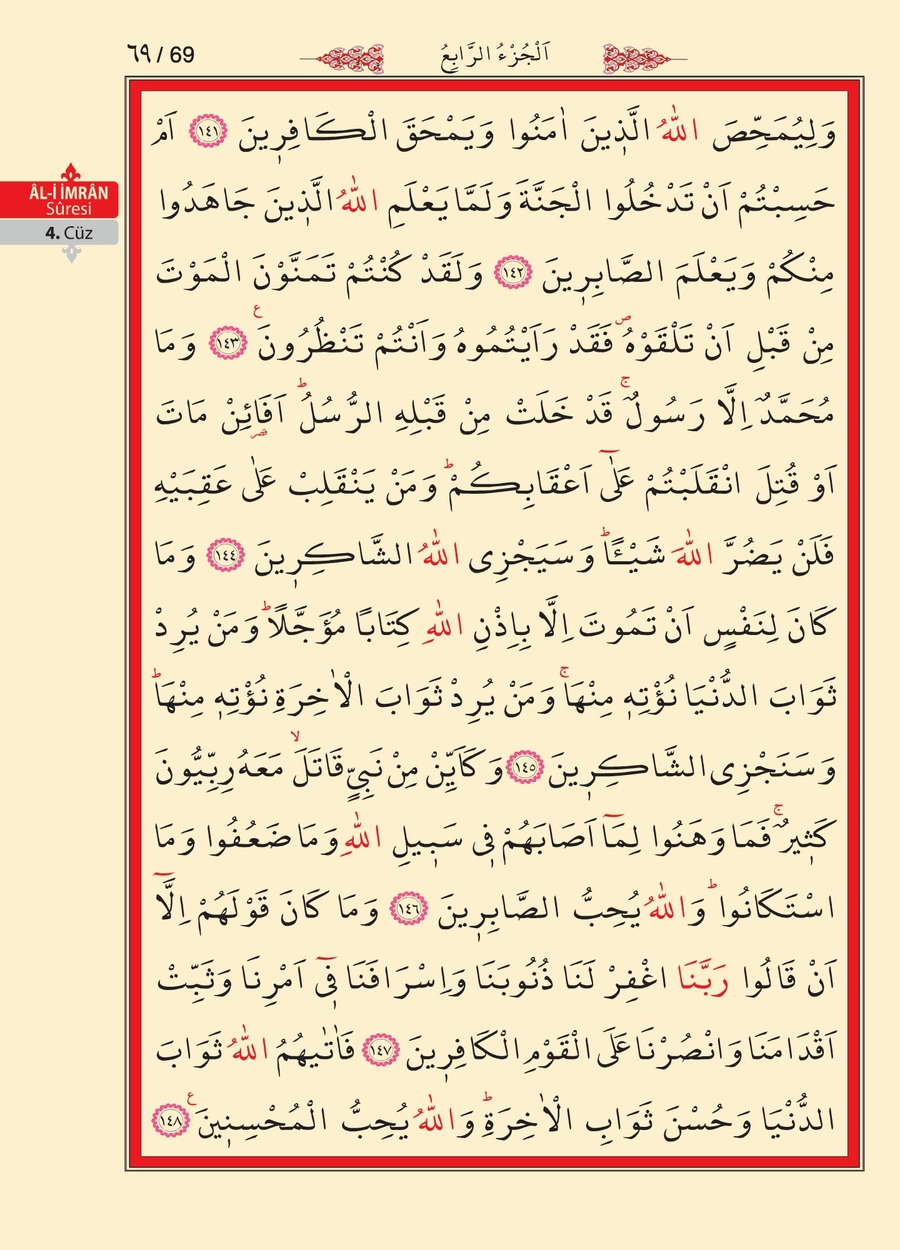 ٦٩ / 69
اَلْجُزْءُ الرَّابِعُ
ÂL-İ İMRÂN
Sûresi
4. Cüz
وَلِيُمَحِّصَ اللّٰهُ الَّذ۪ينَ اٰمَنُوا وَيَمْحَقَ الْكَافِر۪ينَ ﴿١٤١﴾ اَمْ
حَسِبْتُمْ اَنْ تَدْخُلُوا الْجَنَّةَ وَلَمَّا يَعْلَمِ اللّٰهُ الَّذ۪ينَ جَاهَدُوا
مِنْكُمْ وَيَعْلَمَ الصَّابِر۪ينَ ﴿١٤٢﴾ وَلَقَدْ كُنْتُمْ تَمَنَّوْنَ الْمَوْتَ
مِنْ قَبْلِ اَنْ تَلْقَوْهُۖ فَقَدْ رَاَيْتُمُوهُ وَاَنْتُمْ تَنْظُرُونَ ع ﴿١٤٣﴾ وَمَا
مُحَمَّدٌ اِلَّا رَسُولٌۚ قَدْ خَلَتْ مِنْ قَبْلِهِ الرُّسُلُۜ اَفَا۬ئِنْ مَاتَ
اَوْ قُتِلَ انْقَلَبْتُمْ عَلٰٓى اَعْقَابِكُمْۜ وَمَنْ يَنْقَلِبْ عَلٰى عَقِبَيْهِ
فَلَنْ يَضُرَّ اللّٰهَ شَيْـًٔاۜ وَسَيَجْزِى اللّٰهُ الشَّاكِر۪ينَ ﴿١٤٤﴾ وَمَا
كَانَ لِنَفْسٍ اَنْ تَمُوتَ اِلَّا بِاِذْنِ اللّٰهِ كِتَابًا مُؤَجَّلًاۜ وَمَنْ يُرِدْ
ثَوَابَ الدُّنْيَا نُؤْتِه۪ مِنْهَاۚ وَمَنْ يُرِدْ ثَوَابَ الْاٰخِرَةِ نُؤْتِه۪ مِنْهَاۜ
وَسَنَجْزِى الشَّاكِر۪ينَ ﴿١٤٥﴾ وَكَاَيِّنْ مِنْ نَبِيٍّ قَاتَلَۙ مَعَهُ رِبِّيُّونَ
كَث۪يرٌۚ فَمَا وَهَنُوا لِمَٓا اَصَابَهُمْ ف۪ى سَب۪يلِ اللّٰهِ وَمَا ضَعُفُوا وَمَا
اسْتَكَانُواۜ وَاللّٰهُ يُحِبُّ الصَّابِر۪ينَ ﴿١٤٦﴾ وَمَا كَانَ قَوْلَهُمْ اِلَّٓا
اَنْ قَالُوا رَبَّنَا اغْفِرْ لَنَا ذُنُوبَنَا وَاِسْرَافَنَا ف۪ٓى اَمْرِنَا وَثَبِّتْ
اَقْدَامَنَا وَانْصُرْنَا عَلَى الْقَوْمِ الْكَافِر۪ينَ ﴿١٤٧﴾ فَاٰتٰيهُمُ اللّٰهُ ثَوَابَ
الدُّنْيَا وَحُسْنَ ثَوَابِ الْاٰخِرَةِۜ وَاللّٰهُ يُحِبُّ الْمُحْسِن۪ينَ ع ﴿١٤٨﴾